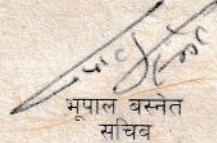 भूपाल बस्नेत
सचिव